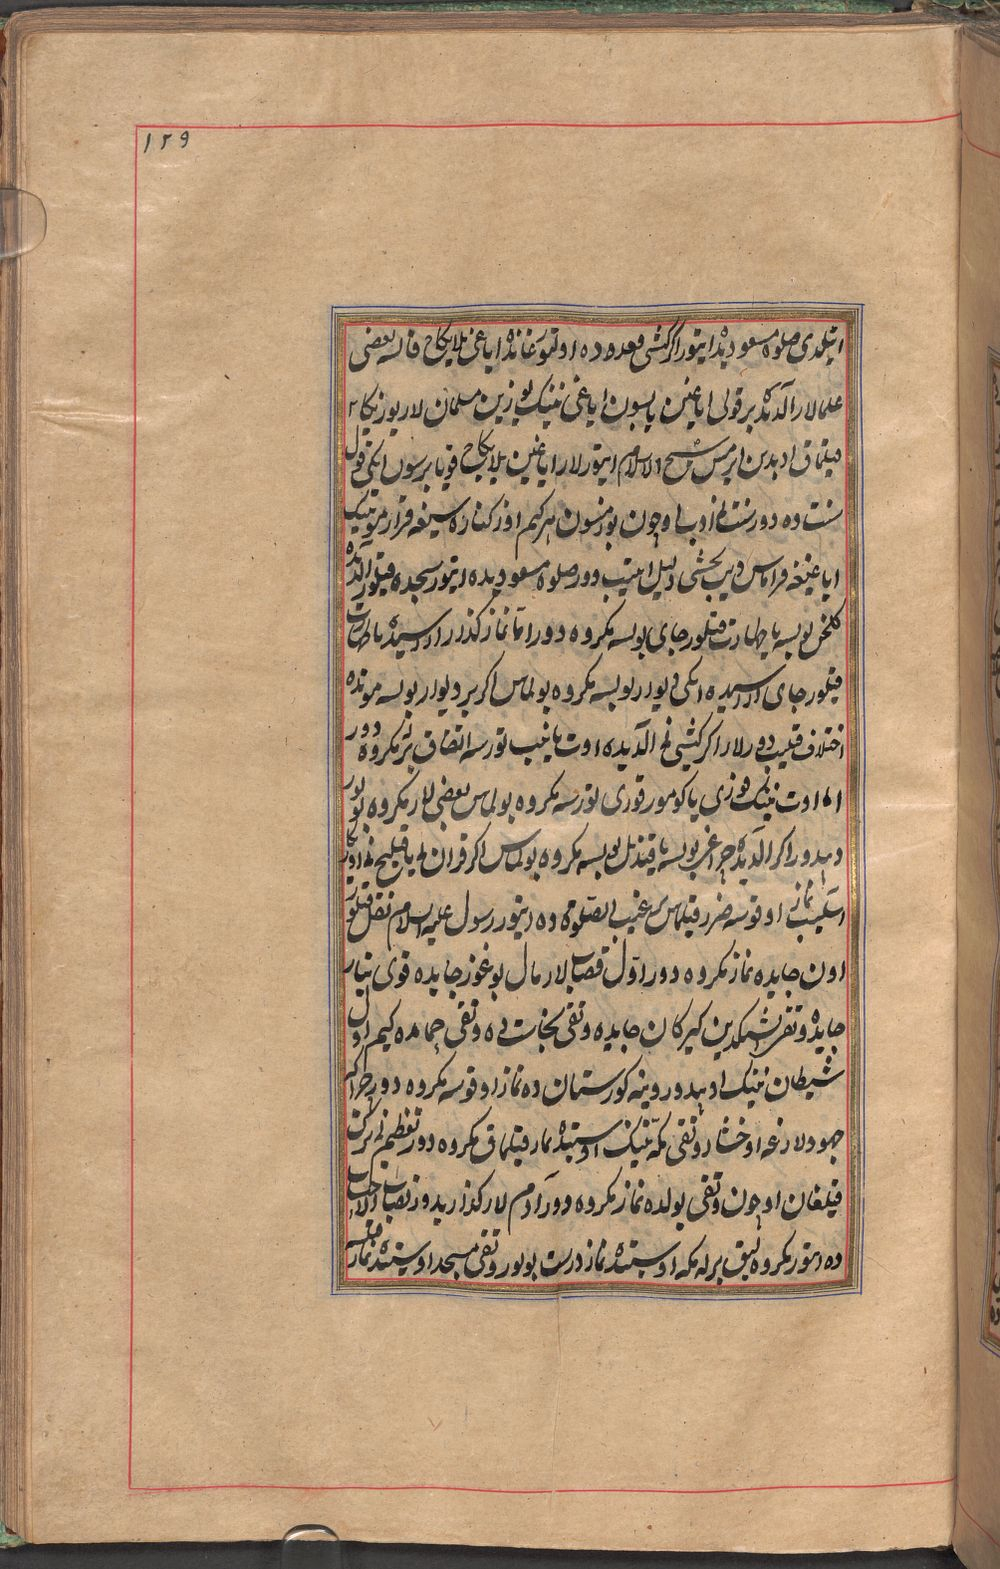 ۱۲۹
ایتلدی صلوة مسعودیده ایتور اکر کشی قعده ده اولتورغانده ایاغی بلایکاح قالسه بعضی
علمالار آلدیده بر قولی ایاغین یاپسون ایاغی نینک یوزین مسلمان لار یوزیکا
قیلماق ادبدین ایرمس شیخ الاسلام ایتورلار ایاغین یلایکاح قویا برسون ایکی قول
سنت ده دور سنت نی ادب اوچون بوزمسون هر کیم اوز کناره سیغه قرار موتینک
ایاغیغه قراماس دیب یخشی دلیل ایتیب دور صلوة مسعودیده ایتور سجده قیلور آلدیده
کلخن بولسه یا طهارت قیلور جای بولسه مکروه دور اما نماز کذار اراسیده یا طهارت
قیلور جای اراسیده ایکی دیوار بولسه مکروه بولماس اکر بر دیوار بولسه مونده
اختلاف قیلیب دورلار اکر کشی نی آلدیده اوت یانیب تورسه اتفاق بیر مکروه دور
اما اوت نینک قوزی یا کومور قوری تورسه مکروه بولماس بعضی لار مکروه بولور
دیدور اکر آلدیده چراغ بولسه یا قندیل بولسه مکروه بولماس اکر قران نی یا قلیج نی
اسلیب نماز اوقوسه ضرر قیلماس ترغیب الصلوة ده ایتور رسول علیه السلام نقل قیلور
اون جایده نماز مکروه دور اول قصاب لار مال بوغوز جایده قوی یتار
جایده و تقی کیرکان جایده و تقی نجاست ده و تقی حمامده کیم اول
شیطان نینک اویدور وینه کورستان ده نماز اوقوسه مکروه دور چرا کیم
جهودلارغه اوخشار و تقی مکه نینک اوستیده نماز قیلماق مکروه دور تعظیم نی ترک
قیلغان اوچون و تقی یولده نماز مکروه دور آدم لار کذار یدور نصاب الاحتساب
ده ایتور مکروه لیق برله مکه اوستیده نماز درست بولور و تقی مسجد اوستیده نماز